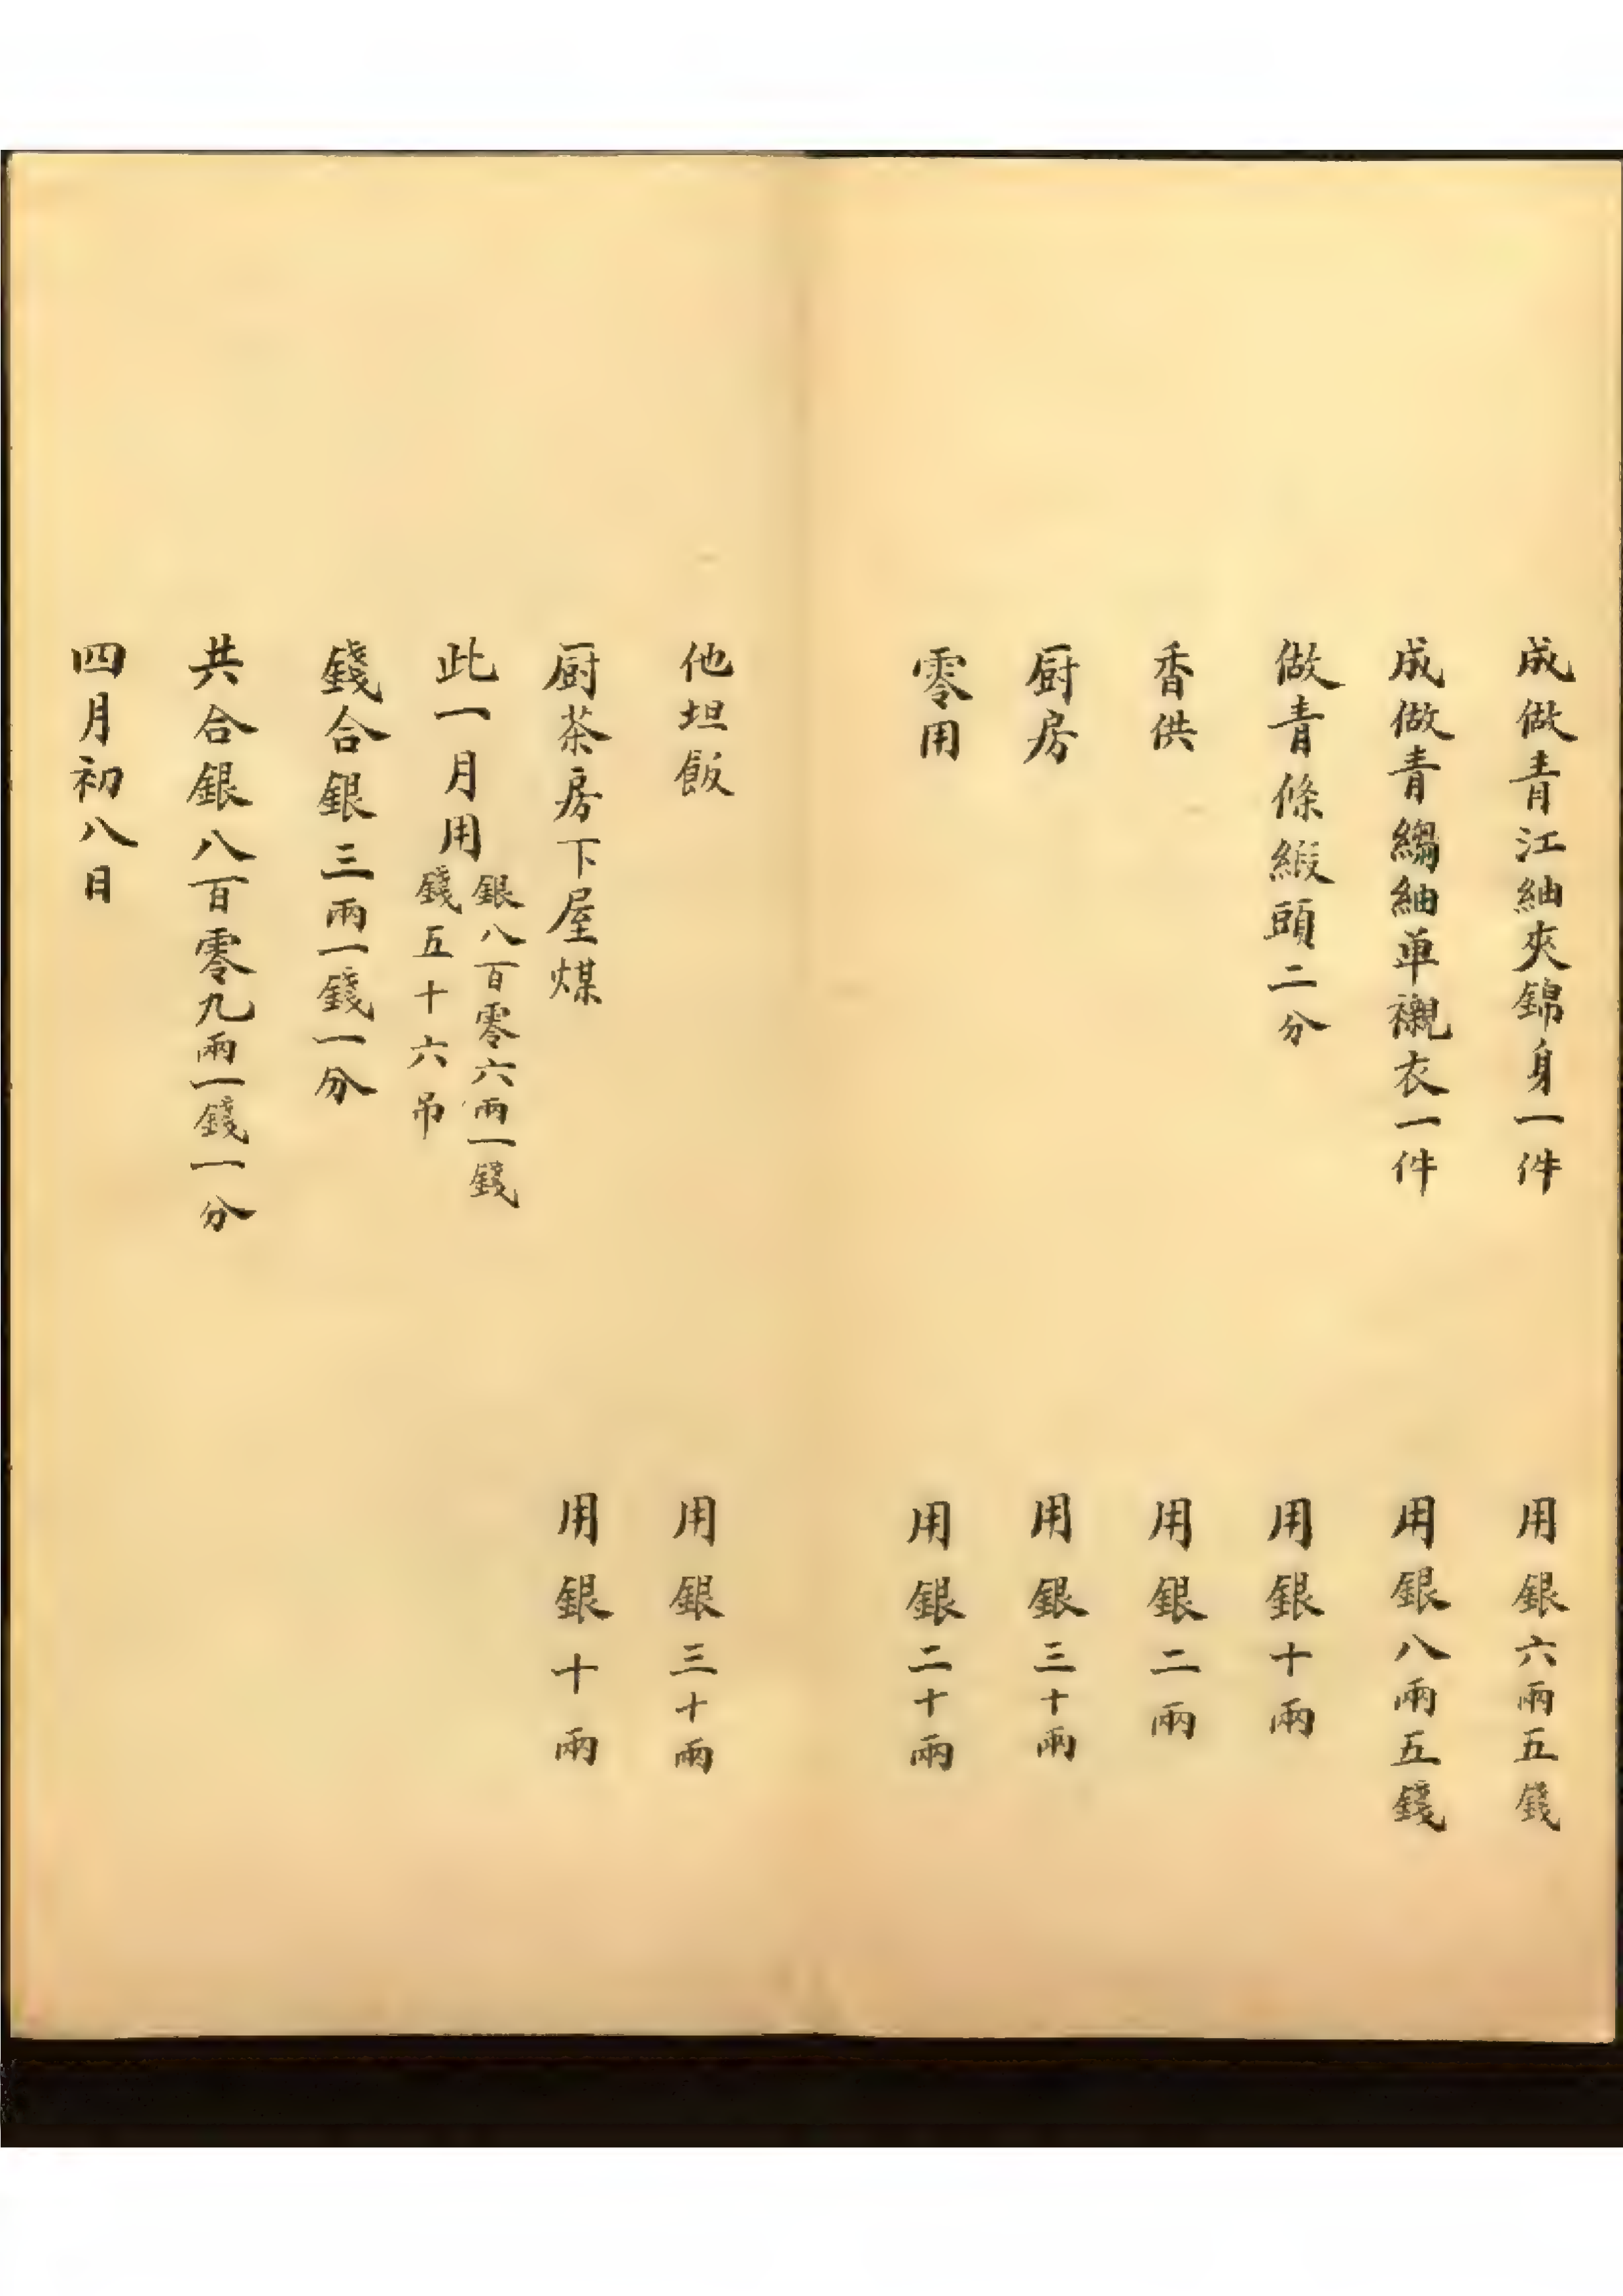 成做青江紬夾錦身一件 用銀六兩五錢
成做青縐紬單襯衣一件 用銀八兩五錢
做青條緞頭二分 用銀十兩
香供 用銀二兩
厨房 用銀三十兩
零用 用銀二十兩
他坦飯 用銀三十兩
厨茶房下屋煤 用銀十兩
此一月用
銀八百零六兩一錢
錢五十六吊
錢合銀三兩一錢一分
共合銀八百零九兩一錢一分
四月初八日